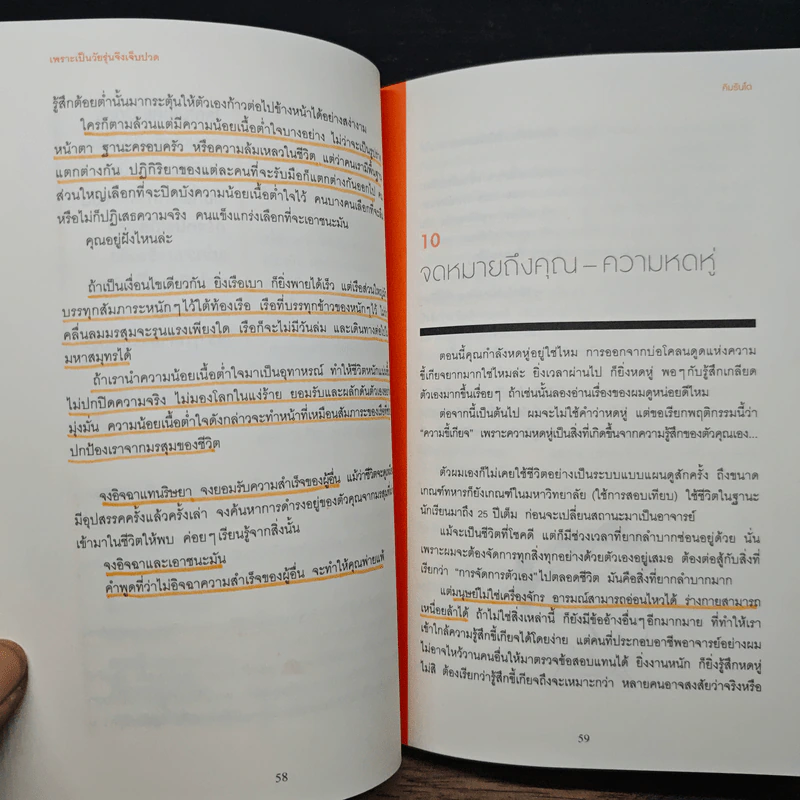 เพราะเป็นวัยรุ่นจึงเจ็บปวด
รู้สึกต้อยต่ำนั้นมากระตุ้นให้ตัวเองก้าวต่อไปข้างหน้าได้อย่างสง่างาม
ใครก็ตามล้วนแต่มีความน้อยเนื้อต่ำใจบางอย่าง ไม่ว่าจะเป็น
หน้าตา ฐานะครอบครัว หรือความล้มเหลวในชีวิต แต่ว่าคนเรามี
แตกต่างกัน ปฏิกิริยาของแต่ละคนที่จะรับมือก็แตกต่างกันออกไป
ส่วนใหญ่เลือกที่จะปิดบังความน้อยเนื้อต่ำใจไว้ คนบางคนเลือกที่จะ
หรือไม่ก็ปฏิเสธความจริง คนแข็งแกร่งเลือกที่จะเอาชนะมัน
คุณอยู่ฝั่งไหนล่ะ
ถ้าเป็นเงื่อนไขเดียวกัน ยิ่งเรือเบา ก็ยิ่งพายได้เร็ว แต่เรือส่วนใหญ่
บรรทุกสัมภาระหนักๆ ไว้ใต้ท้องเรือ เรือที่บรรทุกข้าวของหนักๆ ไว้
คลื่นลมมรสุมจะรุนแรงเพียงใด เรือก็จะไม่มีวันล่ม และเดินทางต่อไป
มหาสมุทรได้
ถ้าเรานำความน้อยเนื้อต่ำใจมาเป็นอุทาหรณ์ ทำให้ชีวิตหนักแน่น
ไม่ปกปิดความจริง ไม่มองโลกในแง่ร้าย ยอมรับและผลักดันตัวเอง
มุ่งมั่น ความน้อยเนื้อต่ำใจดังกล่าวจะทำหน้าที่เหมือนสัมภาระของเรือ
ปกป้องเราจากมรสุมของชีวิต
จงอิจฉาแทนริษยา จงยอมรับความสำเร็จของผู้อื่น แม้ว่าชีวิตจะ
มีอุปสรรคครั้งแล้วครั้งเล่า จงค้นหาการดำรงอยู่ของตัวคุณจากมรสุม
เข้ามาในชีวิตให้พบ ค่อยๆ เรียนรู้จากสิ่งนั้น
จงอิจฉาและเอาชนะมัน
คำพูดที่ว่าไม่อิจฉาความสำเร็จของผู้อื่น จะทำให้คุณพ่ายแพ้
58
คิมรันโด
10
จดหมายถึงคุณ – ความหดหู่
ตอนนี้คุณกำลังหดหู่อยู่ใช่ไหม การออกจากบ่อโคลนดูดแห่งความ
ขี้เกียจยากมากใช่ไหมล่ะ ยิ่งเวลาผ่านไป ก็ยิ่งหดหู่ พอๆ กับรู้สึกเกลียด
ตัวเองมากขึ้นเรื่อยๆ ถ้าเช่นนั้นลองอ่านเรื่องของผมดูหน่อยดีไหม
ต่อจากนี้เป็นต้นไป ผมจะไม่ใช้คำว่าหดหู่ แต่ขอเรียกพฤติกรรมนี้ว่า
“ความขี้เกียจ” เพราะความหดหู่เป็นสิ่งที่เกิดขึ้นจากความรู้สึกของตัวคุณเอง...
ตัวผมเองก็ไม่เคยใช้ชีวิตอย่างเป็นระบบแบบแผนดูสักครั้ง ถึงขนาด
เกณฑ์ทหารก็ยังเกณฑ์ในมหาวิทยาลัย (ใช้การสอบเทียบ) ใช้ชีวิตในฐานะ
นักเรียนมาถึง 25 ปีเต็ม ก่อนจะเปลี่ยนสถานะมาเป็นอาจารย์
แม้จะเป็นชีวิตที่โชคดี แต่ก็มีช่วงเวลาที่ยากลำบากซ่อนอยู่ด้วย นั่น
เพราะผมจะต้องจัดการทุกสิ่งทุกอย่างด้วยตัวเองอยู่เสมอ ต้องต่อสู้กับสิ่งที่
เรียกว่า “การจัดการตัวเอง” ไปตลอดชีวิต มันคือสิ่งที่ยากลำบากมาก
แต่มนุษย์ไม่ใช่เครื่องจักร อารมณ์สามารถอ่อนไหวได้ ร่างกายสามารถ
เหนื่อยล้าได้ ถ้าไม่ใช่สิ่งเหล่านี้ ก็ยังมีข้ออ้างอื่นๆ อีกมากมาย ที่ทำให้เรา
เข้าใกล้ความรู้สึกขี้เกียจได้โดยง่าย แต่คนที่ประกอบอาชีพอาจารย์อย่างผม
ไม่อาจไหว้วานคนอื่นให้มาตรวจข้อสอบแทนได้ ยิ่งงานหนัก ก็ยิ่งรู้สึกหดหู่
ไม่สิ ต้องเรียกว่ารู้สึกขี้เกียจถึงจะเหมาะกว่า หลายคนอาจสงสัยว่าจริงหรือ
59